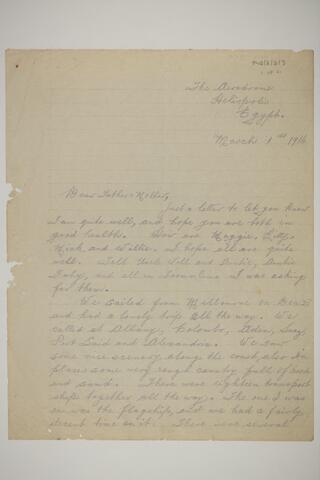 The Aerodrome
Heliopolis
Egypt.
March 1st 1916
Dear Father & Mother,
Just a letter to let you know
I am quite well, and hope you are both in
good health. How are Maggie,
Mick and Willie. I hope all are quite
well. Tell Uncle Will and Auntie
and all in I was asking
for them.
We sailed from Melbourne on
and had a lovely trip all the way. We
called at Albany, Colombo, Aden, Suez,
Port Said and Alexandria. We saw
some nice scenery along the coast, also in
places some very rough country full of rock
and sand. There were eighteen transport
ships together all the way. The one I was
on was the flagship, and we had a fairly
decent time on it. There were several